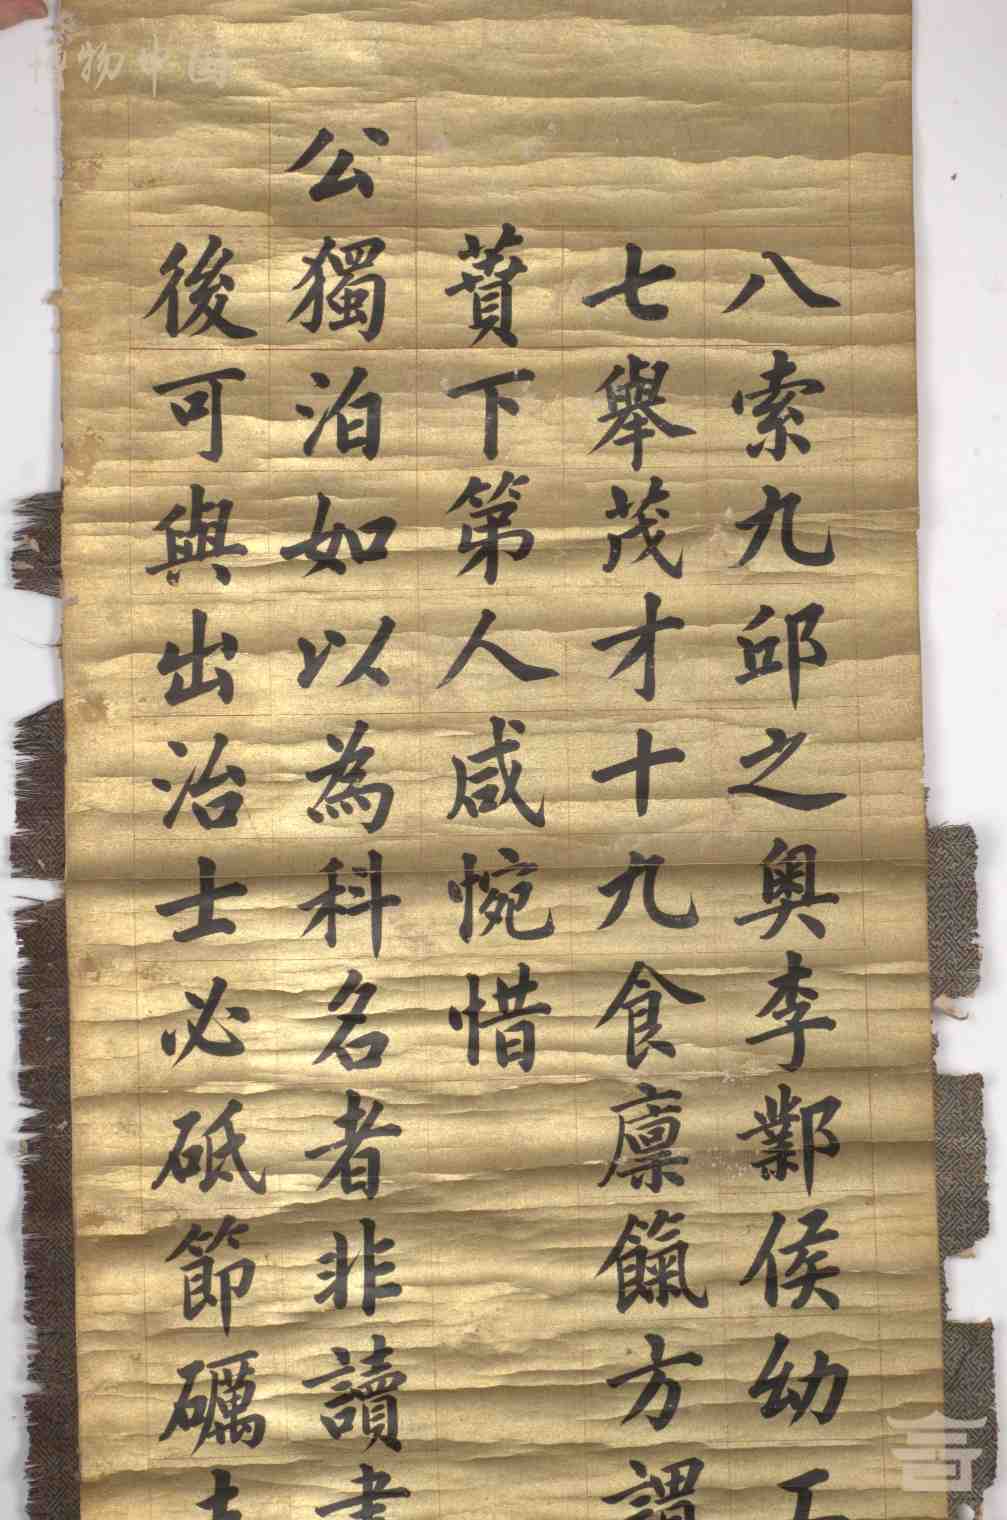 八索九邱之奧李鄴侯幼工
七舉茂才十九食廩餼方謂
蕡下第人咸惋惜
公獨泊如以為科名者非讀書
後可與出治士必砥節礪
博物中国